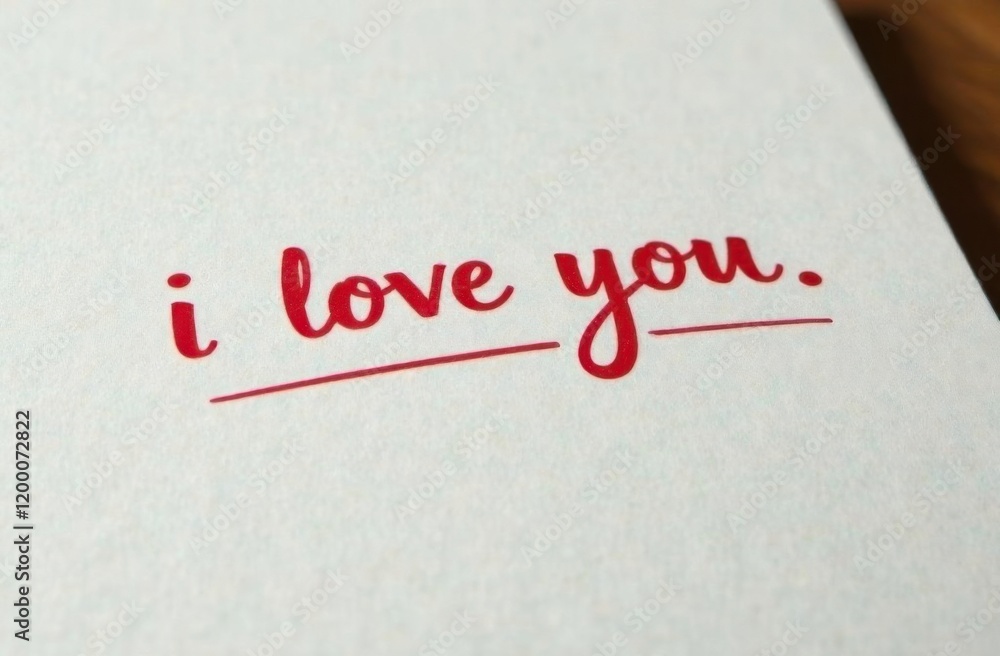 i love you.
Adobe Stock | #1200072822